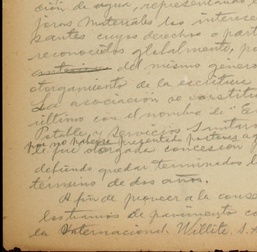 ción de agua, representando
joras materiales los interesa
santes cuyos derechos o part
reconocidos globalmente, po
del mismo gener
otorgamiento de la escritura
La asociación se constitu
último con el nombre de "E
Potable y Servicios Sanitar
por no haberse presentado postores a
le fué otorgada concesión
debiendo quedar terminados l
término de dos años.
A fin de proveer a la conse
los tramos de pavimento co
la Internacional, Willite, S.A